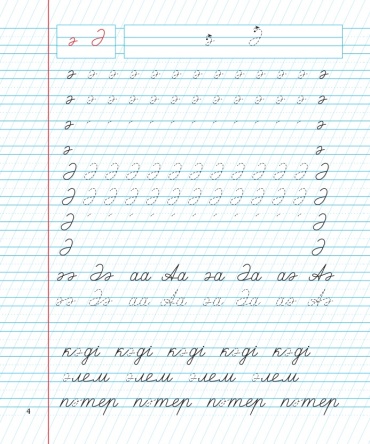 ә Ә ә Ә
ә ә ә ә ә ә ә ә ә ә ә ә ә
ә ә ә ә ә ә ә ә ә ә ә ә ә
ә ә
ә ә
Ә Ә Ә Ә Ә Ә Ә Ә Ә Ә Ә Ә Ә
Ә Ә Ә Ә Ә Ә Ә Ә Ә Ә Ә Ә Ә
Ә Ә
Ә Ә
әә Әә аа Аа әа Әа аә Аә
әә Әә аа Аа әа Әа аә Аә
кәді кәді кәді кәді кәді
әлем әлем әлем әлем
пәтер пәтер пәтер пәтер
4